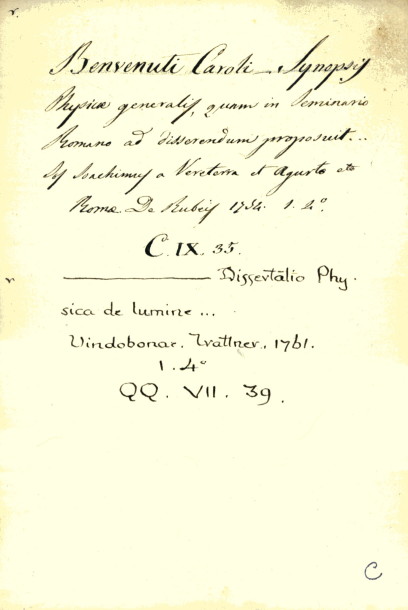 Benvenuti Caroli — Synopsis
Physicæ generalis, quam in Seminario
Romano ad disserendum proposuit...
Jos Joachimus a Vereterra et Agurto etc
Romæ. De Rubeis 1754. 1. 4º.
C. IX. 35.
——— Dissertatio Phy.
sica de lumine ...
Vindobonae. Trattner. 1761.
1. 4º
QQ. VII. 39.
C